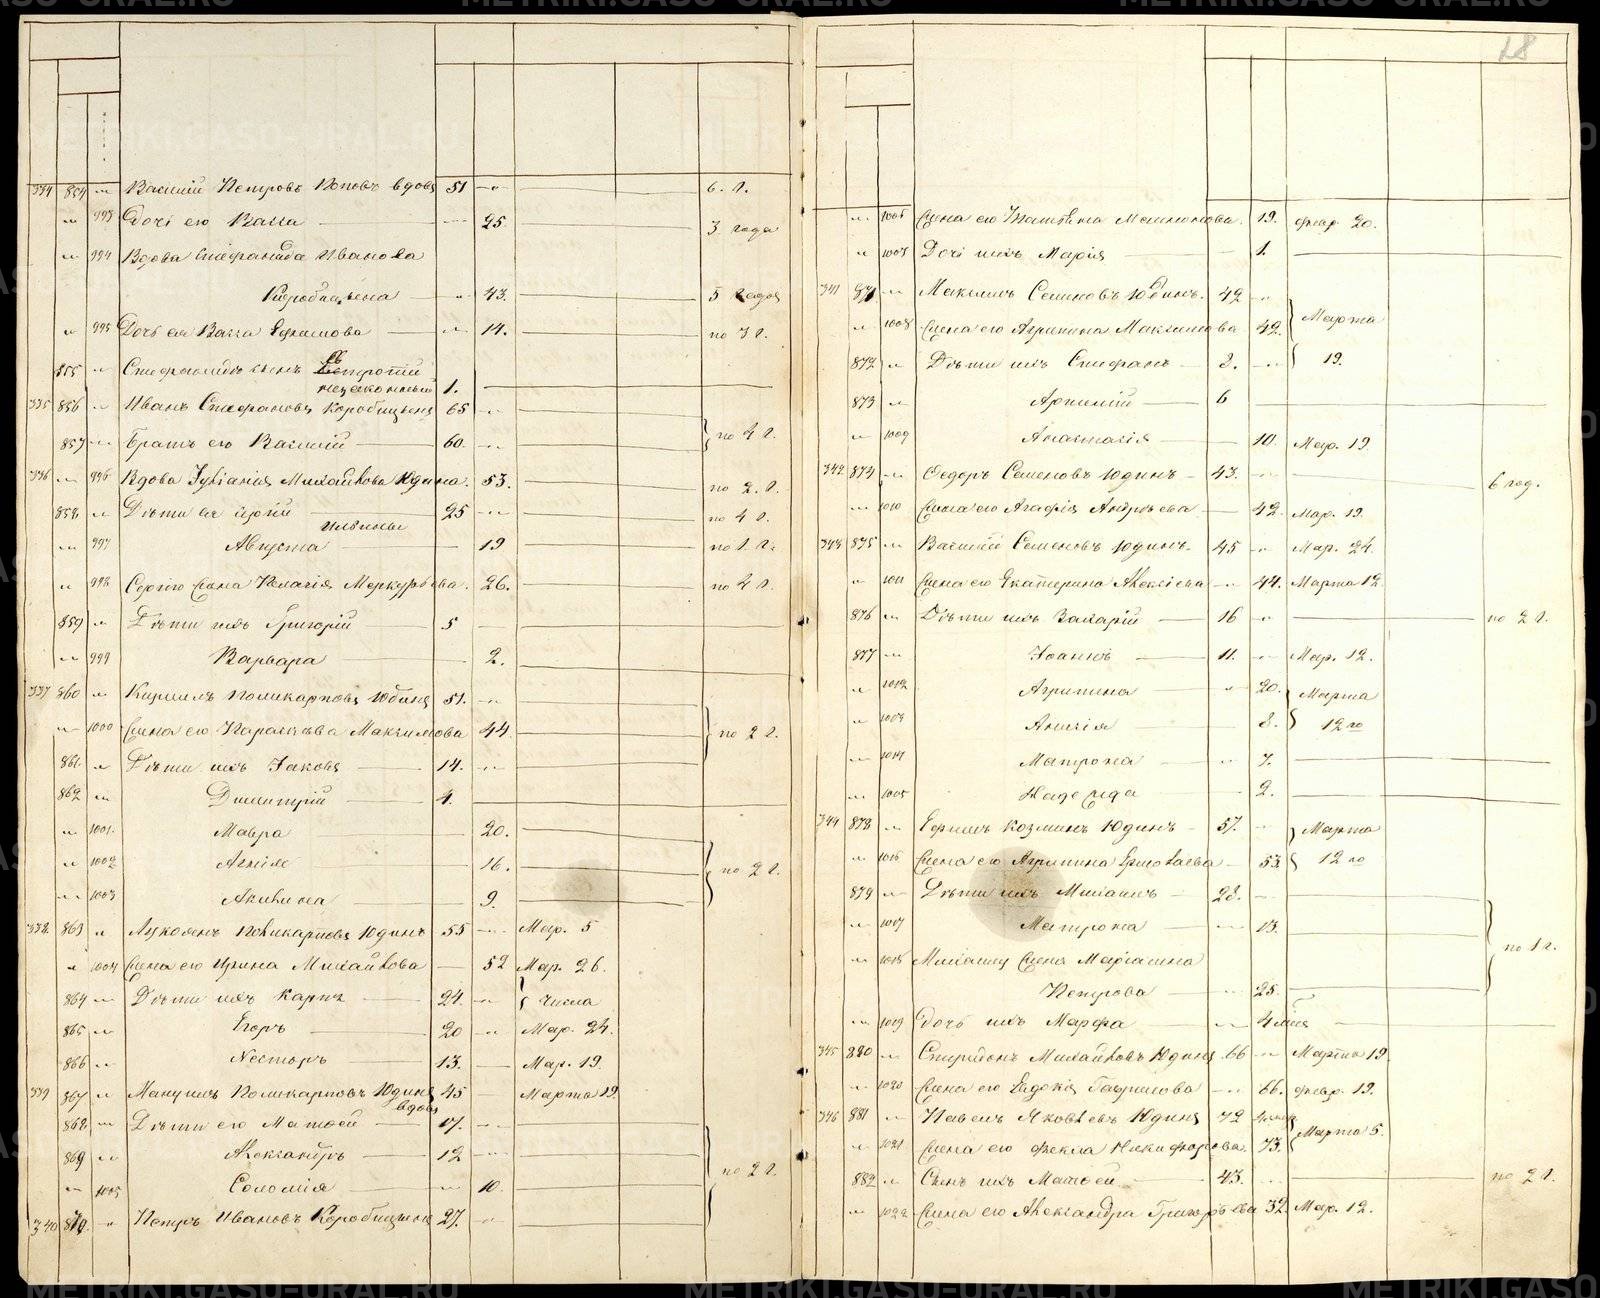 18
334 854 „ Василій Петровъ Поповъ вдовъ 51 „ 6. г.
„ 993 Дочь его Васса „ 25. 3 года
„ 994 Вдова Стефанида Иванова
Коробицына „ 43. 5 годов
„ 995 Дочь ея Васса Ефимова „ 14. по 3 г.
855 „ сынъ
незаконный 1.
335 856 „ Иванъ Стефановъ Коробицынъ 65 „
857 „ Братъ его Василій 60. „ по 4 г.
336 „ 996 Вдова Іуліанія Михайлова Юдина. 53. по 2. г.
858 „ Дѣти ея 25 „ по 4 г.
„ 997 Августа 19 по 1 г.
„ 998 Жена Пелагія Меркурьева. 26. по 4 г.
859 „ Дѣти ихъ Григорій 5
„ 999 Варвара 2.
337 860 „ Кириллъ Поликарповъ Юдинъ 51. „
„ 1000 Жена его Параскева Максимова 44. по 2 г.
861. „ Дѣти ихъ Іаковъ 14. „
862 „ Димитрій 4.
„ 1001. Мавра 20.
„ 1002 16. по 2 г.
„ 1003 Акилина 9.
338. 863 „ Поликарповъ Юдинъ 55 „ Мар. 5
„ 1004 Жена его Ирина Михайлова 52 Мар. 26.
864 „ Дѣти ихъ Карпъ 24. „ числа
865 „ Егоръ 20 „ Мар. 24.
866 „ Несторъ 13. Мар. 19.
339 867 „ Мануилъ Поликарповъ Юдинъ вдовъ 45 Марта 19
868 „ Дѣти его Матѳей 17. „
869 „ Александръ 12 „ по 2 г.
„ 1005 Соломія „ 10.
340 870. „ Петръ Ивановъ Коробицынъ 27. „
„ 1006 Жена его Мамонтова. 19. февр. 20.
„ 1007 Дочь ихъ Марія 1.
341 871 „ Максимъ Семеновъ Юдинъ. 42 „
„ 1008 Жена его Агрипина Максимова 42. Марта
872 „ Дѣти ихъ Стефанъ 8. „ 19.
873 „ Артемій 6
„ 1009 Анастасія 10. Мар. 19.
342 874 „ Ѳедоръ Семеновъ Юдинъ 43. „ 6 год.
„ 1010 Жена его Агафія Андреева 42. Мар. 19.
343 875 „ Василій Семеновъ Юдинъ 45 „ Мар. 24.
„ 1011 Жена его Екатерина Алексіева „ 44. Марта 12
876 „ Дѣти ихъ Захарій 16 „ по 2 г.
877 „ Іоаннъ 11. „ Мар. 12.
„ 1012 Агрипина „ 20. Марта
„ 1013 Анисія 8. 12го
„ 1014 Матрона „ 7.
„ 1005 Надежда 2.
344 878 „ Ефимъ Козминъ Юдинъ 57. „ Марта
„ 1016 Жена его Агрипина Ермолаева 53. 12го
879 „ Дѣти ихъ Михаилъ 28. „
„ 1017 Матрона „ 13. по 1 г.
„ 1018 Михаилу Жена
Петрова „ 25.
„ 1019 Дочь ихъ Марфа „ 4 мѣс
345 880 „ Спиридонъ Михайловъ Юдинъ 66 „ Марта 19.
„ 1020 Жена его Евдокія Гаврилова „ 66. февр. 19.
346 881 „ Павелъ Яковлевъ Юдинъ 72
„ 1021 Жена его Фекла Никифорова. 73. Марта 5.
882 „ Сынъ ихъ Матѳей 43. „ по 2 г.
„ 1022 Жена его Александра Григорьева 32. Мар. 12.
METRIKI.GASO-URAL.RU